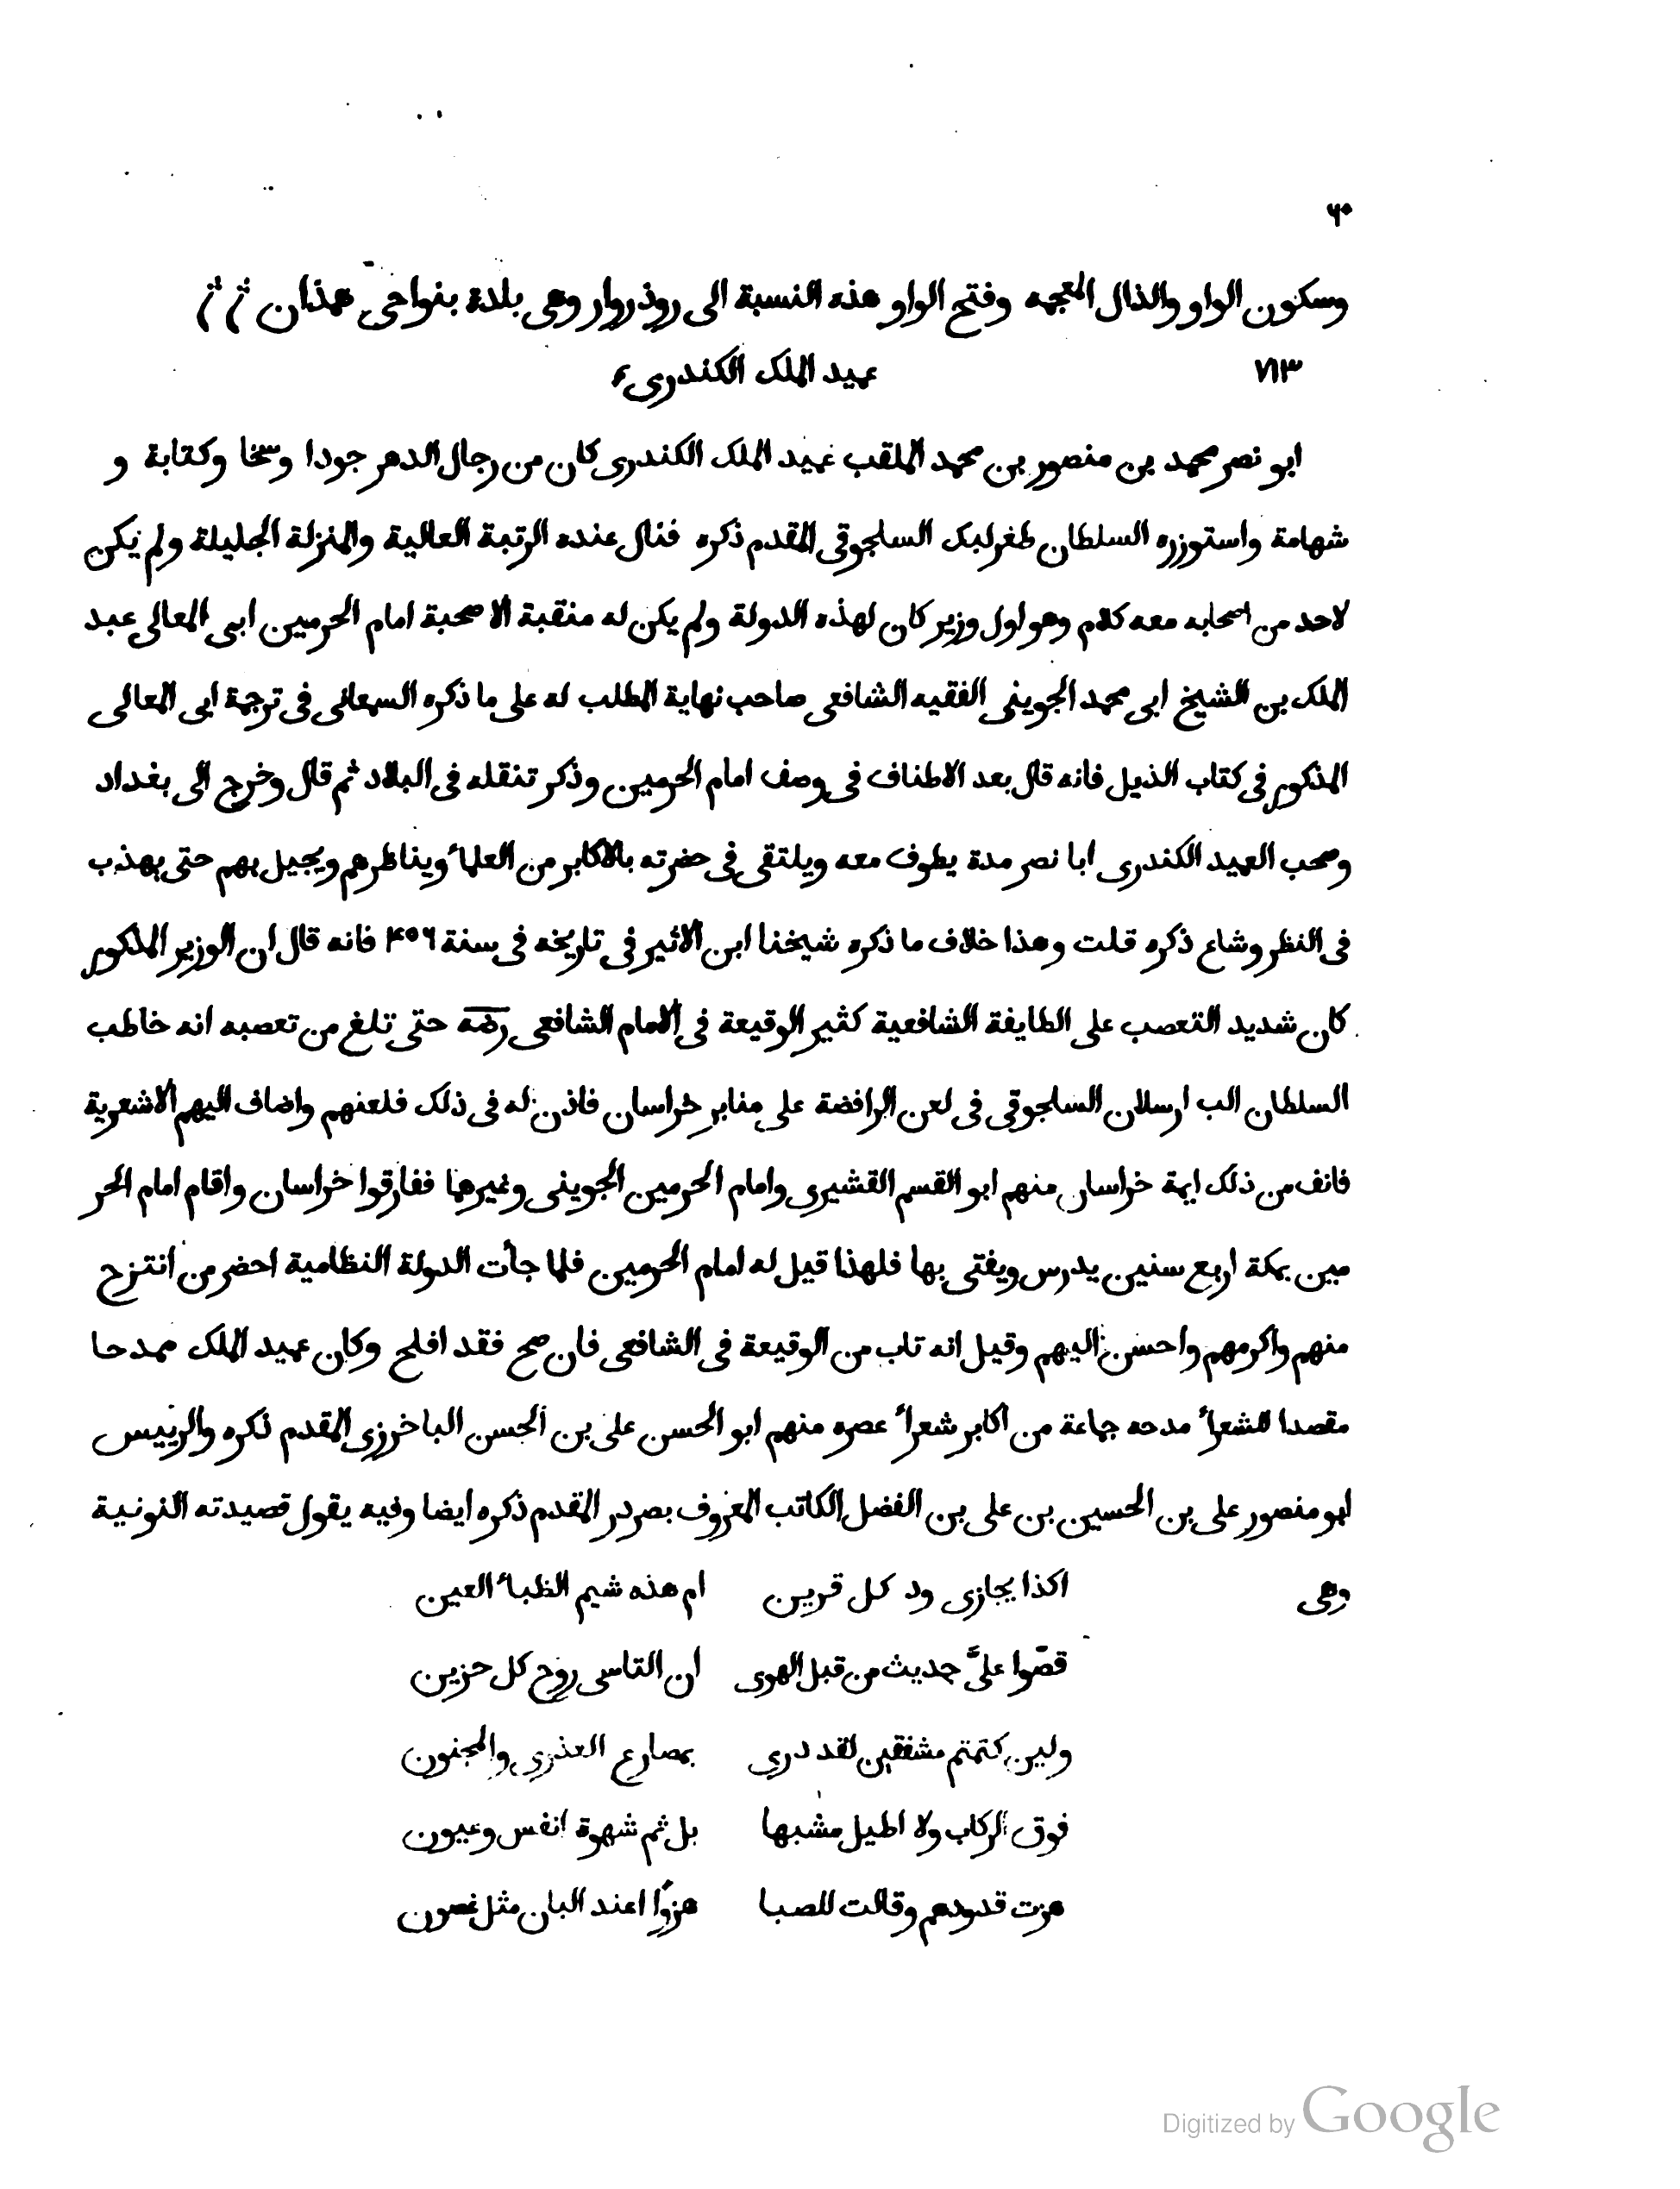 ٦٠
وسكون الواو والذال المعجمه وفتح الواو هذه النسبة الى روذروار وهى بلدة بنواحى همذان
٧١٣ عميد الملك الكندرى
ابو نصر محمد بن منصور بن محمد الملقب عميد الملك الكندرى كان من رجال الدهر جودا وسخا وكتابة و
شهامة واستوزره السلطان طغرلبك السلجوقى المقدم ذكره فنال عنده الرتبة العالية والمنزلة الجليلة ولم يكن
لاحد من اصحابه معه كلام وهو اول وزير كان لهذه الدولة ولم يكن له منقبة الا صحبة امام الحرمين ابى المعالى عبد
الملك بن الشيخ ابى محمد الجوينى الفقيه الشافعى صاحب نهاية المطلب له على ما ذكره السمعانى فى ترجمة ابى المعالى
المذكور فى كتاب الذيل فانه قال بعد الاطناف فى وصف امام الحرمين وذكر تنقله فى البلاد ثم قال وخرج الى بغداد
وصحب العميد الكندرى ابا نصر مدة يطوف معه ويلتقى فى حضرته بالاكابر من العلمأ ويناظرهم ويجيل بهم حتى بهذب
فى النظر وشاع ذكره قلت وهذا خلاف ما ذكره شيخنا ابن الاثير فى تاريخه فى سنة ۴۵۶ فانه قال ان الوزير المذكور
كان شديد التعصب على الطايفة الشافعية كثير الوقيعة فى الامام الشافعى رضه حتى تلغ من تعصبه انه خاطب
السلطان الب ارسلان السلجوقى فى لعن الرافضة على منابر خراسان فاذن له فى ذلك فلعنهم واضاف اليهم الاشعرية
فانف من ذلك ايمة خراسان منهم ابو القسم القشيرى وامام الحرمين الجوينى وغيرهما ففارقوا خراسان واقام امام الحر
مين بمكة اربع سنين يدرس ويفتى بها فلهذا قيل له امام الحرمين فلما جأت الدولة النظامية احضر من انتزح
منهم واكرمهم واحسن اليهم وقيل انه تاب من الوقيعة فى الشافعى فان صح فقد افلح وكان عميد الملك ممدحا
مقصدا للشعرأ مدحه جماعة من اكابر شعرأ عصره منهم ابو الحسن على بن الحسن الباخرزى المقدم ذكره والرييس
ابو منصور على بن الحسين بن على بن الفضل الكاتب المعروف بصردر المقدم ذكره ايضا وفيه يقول قصيدته النونية
وهى اكذا يجازى ود كل قرين ام هذه شيم الظبأ العين
قصّوا علىَّ حديث من قبل الهوى ان التاسى روح كل حزين
ولين كتمتم مشفقين لقد درى بمصارع العذرى والمجنون
فوق الركاب ولا اطيل مشبها بل ثم شهوة انفس وعيون
هزت قدودهم وقالت للصبا هزوًا اعند البان مثل غصون
Digitized by Google